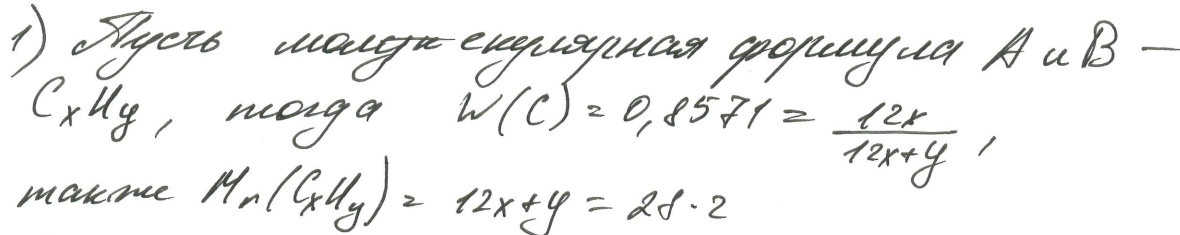 1) Пусть молекулярная формула A и B –
CxHy, тогда W(C) = 0,8571 = 12x / 12x+y ,
также Mr(CxHy) = 12x+y = 28·2